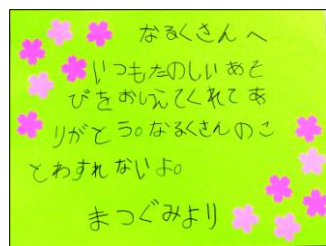 なるくさんへ
いつもたのしいあそ
びをおしえてくれてあ
りがとう。なるくさんのこ
とわすれないよ。
まつぐみより